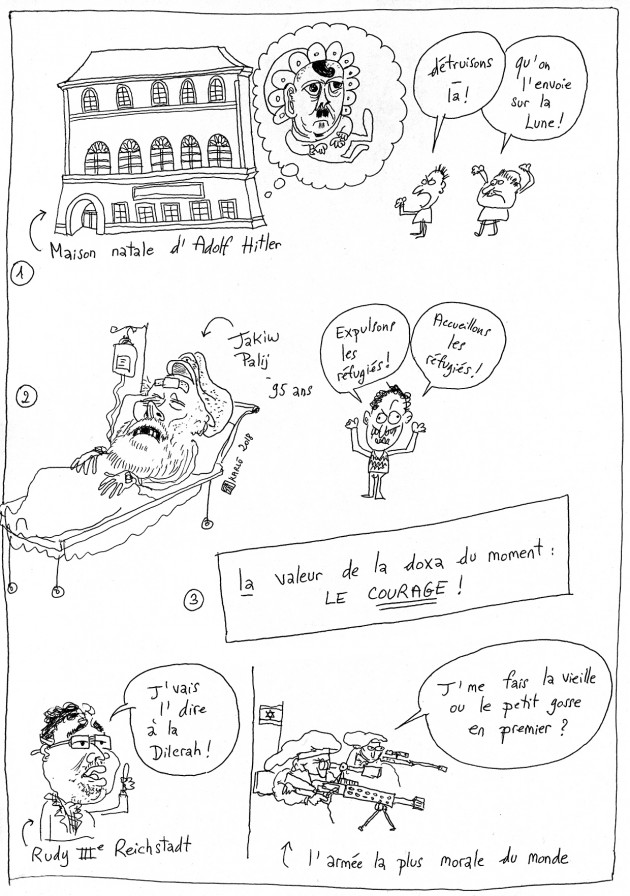 détruisons
la !
qu'on
l'envoie
sur la
Lune !
Maison natale d'Adolf Hitler
1
2
Jakiw
Palij
95 ans
Expulsons
les
réfugiés !
Accueillons
les
réfugiés !
KARLÖ 2018
3
la valeur de la doxa du moment :
LE COURAGE !
J'vais
l'dire
à la
Dilcrah !
Rudy IIIe Reichstadt
J'me fais la vieille
ou le petit gosse
en premier ?
l'armée la plus morale du monde